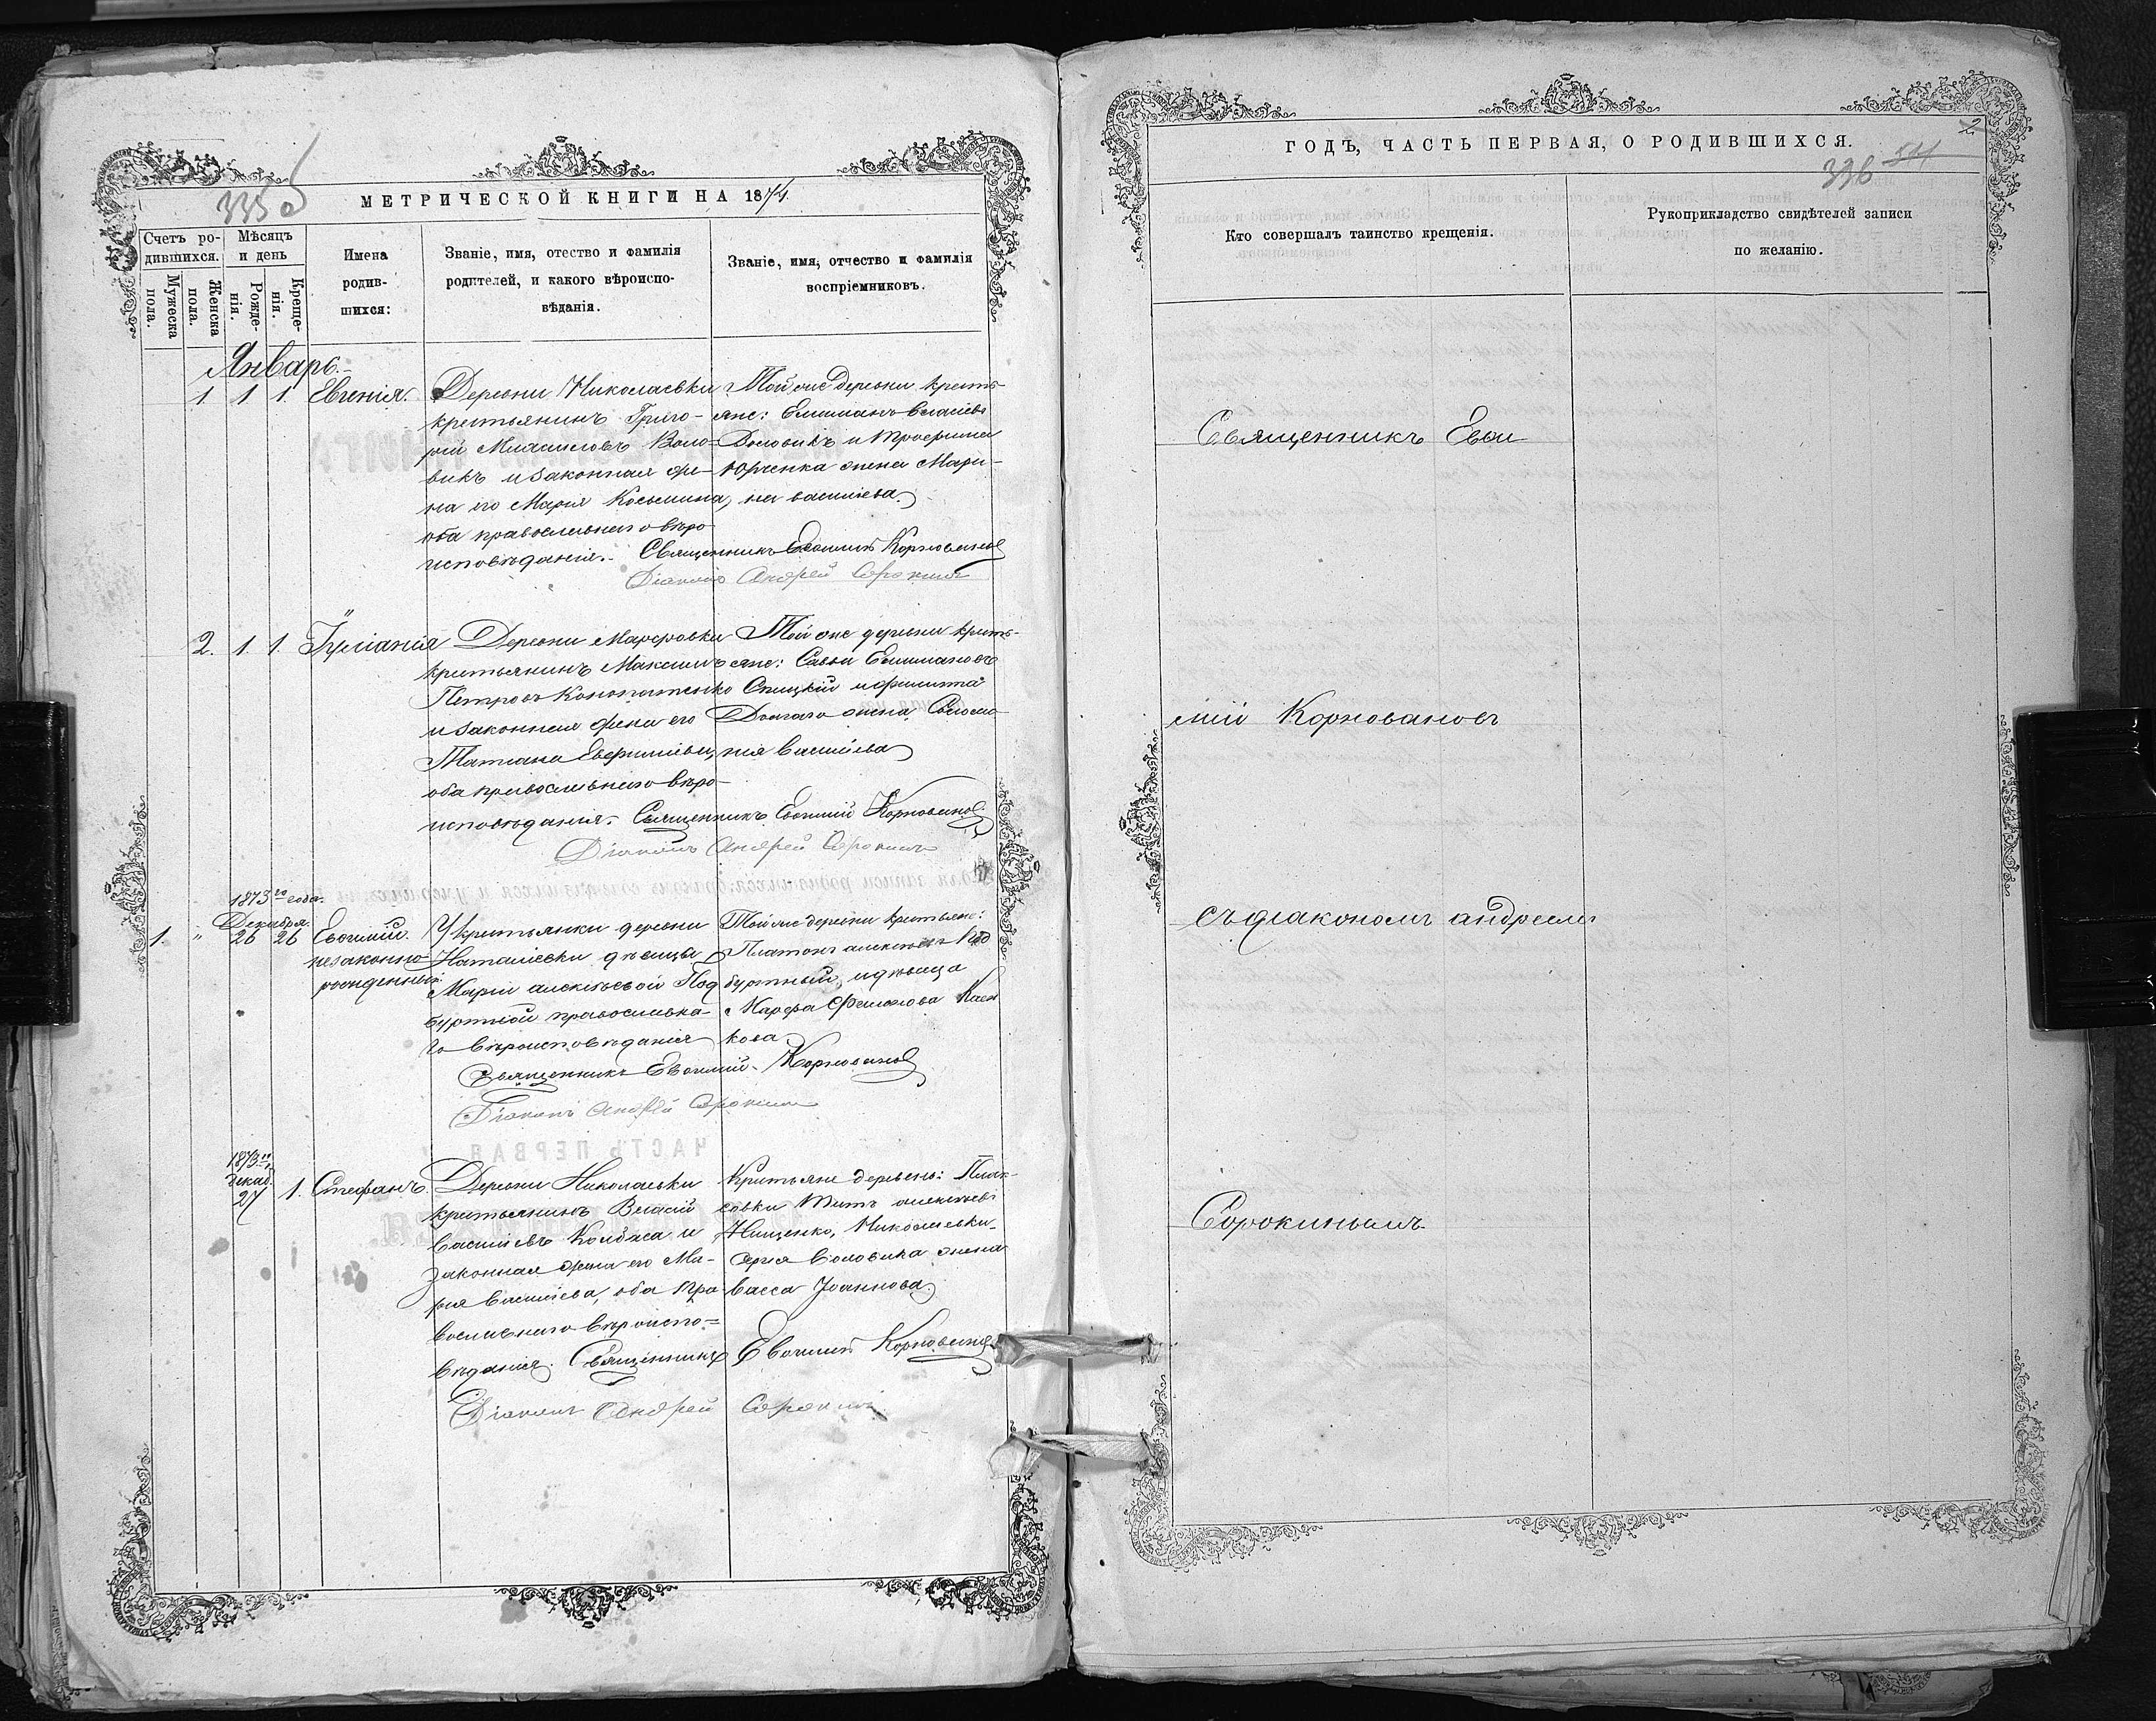 335
МЕТРИЧЕСКОЙ КНИГИ НА 1874
Счетъ ро-
дившихся.
Мужеска
пола.
Женска
пола.
Мѣсяцъ
и день
Рожде-
нія.
Креще-
нія.
Имена
родив-
шихся:
Званіе, имя, отество и фамилія
родителей, и какого вѣроиспо-
вѣданія.
Званіе, имя, отчество и фамилія
воспріемниковъ.
Январь.
1. 1 1. Евгенія.
Деревни Николаевки
крестьянинъ Григо-
рій Михаиловъ Воло-
викъ и законная же-
на его Марія Косьмина,
оба православнаго вѣро
исповѣданія.
Той же деревни кресть-
яне:
Воловикъ и Трофима
Юрченка жена Мари-
на Васильева.
Священникъ Евѳимій Корнованов
Діаконъ Андрей Сорокинъ
2. 1. 1. Іуліанія
Деревни Марфовки
крестьянинъ Максимъ
Петровъ Конопатенко
и законная жена его
Татіана
оба православнаго вѣро-
исповѣданія.
Той же деревни кресть-
яне: Савва
жена
Васильева
Священникъ Евѳимій Корнованов
Діаконъ Андрей Сорокинъ
1873го года.
Декабря
1. " 26 26 Евѳимій.
незаконно-
рожденный
У крестьянки деревни
Наталіевки дѣвицы
Маріи Алексѣевой Под
буртной православна-
го вѣроисповѣданія
Той же деревни крестьяне:
Платонъ Алексѣевъ Под
буртный, и дѣвица
Марфа
кова
Священникъ Евѳимій Корнованов
Діаконъ Андрей Сорокинъ
1873го
декаб.
27 1. Стефанъ.
Деревни Николаевки
крестьянинъ Власій
Васильевъ и
законная жена его Ма-
рія Васильева, оба пра-
вославнаго вѣроиспо-
вѣданія.
Крестьяне деревень:
совки Титъ Алексѣевъ
Нищенко, Николаевки
Сергія Воловика жена
Васса Іоаннова.
Священникъ Евѳимій Корнованов
Діаконъ Андрей Сорокинъ
2
ГОДЪ, ЧАСТЬ ПЕРВАЯ, О РОДИВШИХСЯ.
336
Кто совершалъ таинство крещенія.
Рукоприкладство свидѣтелей записи
по желанію.
Священникъ Евѳи
мій Корновановъ
съ діакономъ Андреемъ
Сорокинымъ.